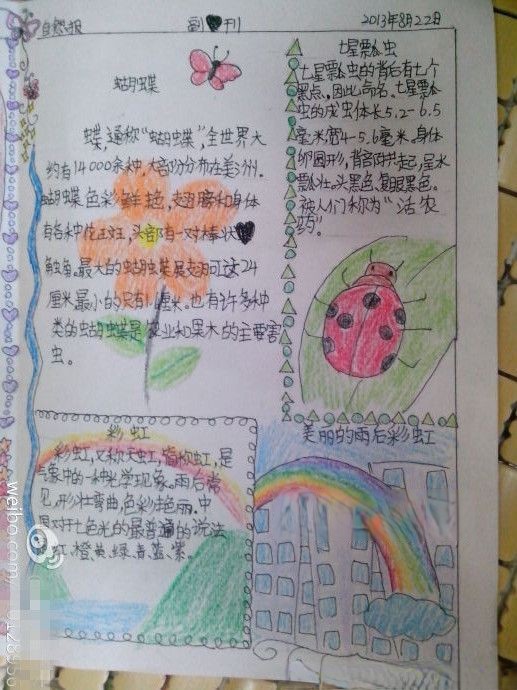 自然报
副刊
2013年8月22日
蝴蝶
蝶,通称“蝴蝶”,全世界大
约有14000余种,大部份分布在美洲.
蝴蝶色彩鲜艳,翅膀和身体
有各种花斑,头部有一对棒状
触角.最大的蝴蝶展翅可达24
厘米,最小的只有1.厘米.也有许多种
类的蝴蝶是农业和果木的主要害
虫。
七星瓢虫
七星瓢虫的背后有七个
黑点,因此命名.七星瓢
虫的成虫体长5.2-6.5
毫米,宽4-5.6毫米.身体
卵圆形,背部拱起,呈水
瓢状.头黑色.复眼黑色.
被人们称为“活农
药”。
彩虹
彩虹,又称天虹,简称虹,是
气象中的一种光学现象.雨后常
见,形状弯曲,色彩艳丽.中
国对七色光的最普遍的说法
红,橙,黄,绿,青,蓝,紫.
美丽的雨后彩虹
weibo.com